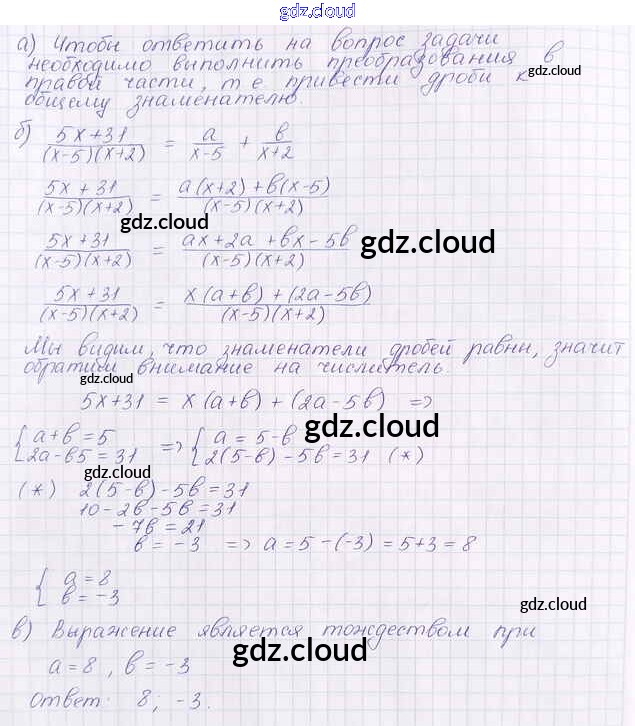 gdz.cloud
а) Чтобы ответить на вопрос задачи
необходимо выполнить преобразования в
правой части, т е привести дроби к
gdz.cloud
общему знаменателю.
б) (5x+31)/((x-5)(x+2)) = a/(x-5) + в/(x+2)
(5x+31)/((x-5)(x+2)) = (a(x+2)+в(x-5))/((x-5)(x+2))
gdz.cloud
(5x+31)/((x-5)(x+2)) = (ax+2a+вx-5в)/((x-5)(x+2))
gdz.cloud
(5x+31)/((x-5)(x+2)) = (x(a+в)+(2a-5в))/((x-5)(x+2))
Мы видим, что знаменатели дробей равны, значит
обратим внимание на числитель.
gdz.cloud
5x+31 = x(a+в)+(2a-5в) =>
gdz.cloud
{a+в=5 => {a=5-в
{2a-в5=31 {2(5-в)-5в=31 (*)
gdz.cloud
(*) 2(5-в)-5в=31
10-2в-5в=31
-7в=21
в=-3 => a=5-(-3)=5+3=8
{a=8
{в=-3
gdz.cloud
в) Выражение является тождеством при
gdz.cloud
a=8, в=-3
Ответ: 8; -3.